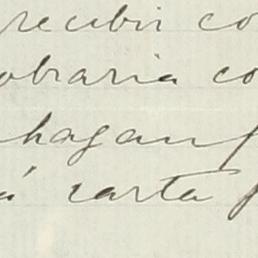 recibir co
obraria co
hagan
á carta